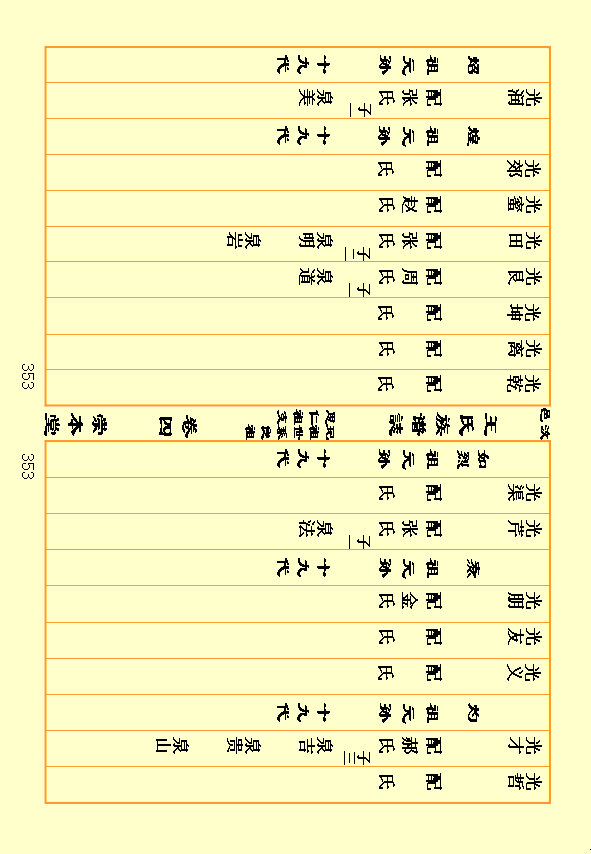 光哲 配 氏
光才 配郝氏 子三 泉吉 泉贵 泉山
灼祖元孙 十九代
光义 配 氏
光友 配 氏
光朋 配金氏
祖元孙 十九代
光芹 配张氏 子一 泉法
光渠 配 氏
如烈祖元孙 十九代
353
汶邑 王氏族谱誌 卷四 崇本堂
光乾 配 氏
光离 配 氏
光坤 配 氏
光艮 配周氏 子一 泉道
光田 配张氏 子二 泉明 泉岩
光蜜 配赵氏
光郊 配 氏
煌祖元孙 十九代
光润 配张氏 子一 泉美
炤祖元孙 十九代
353